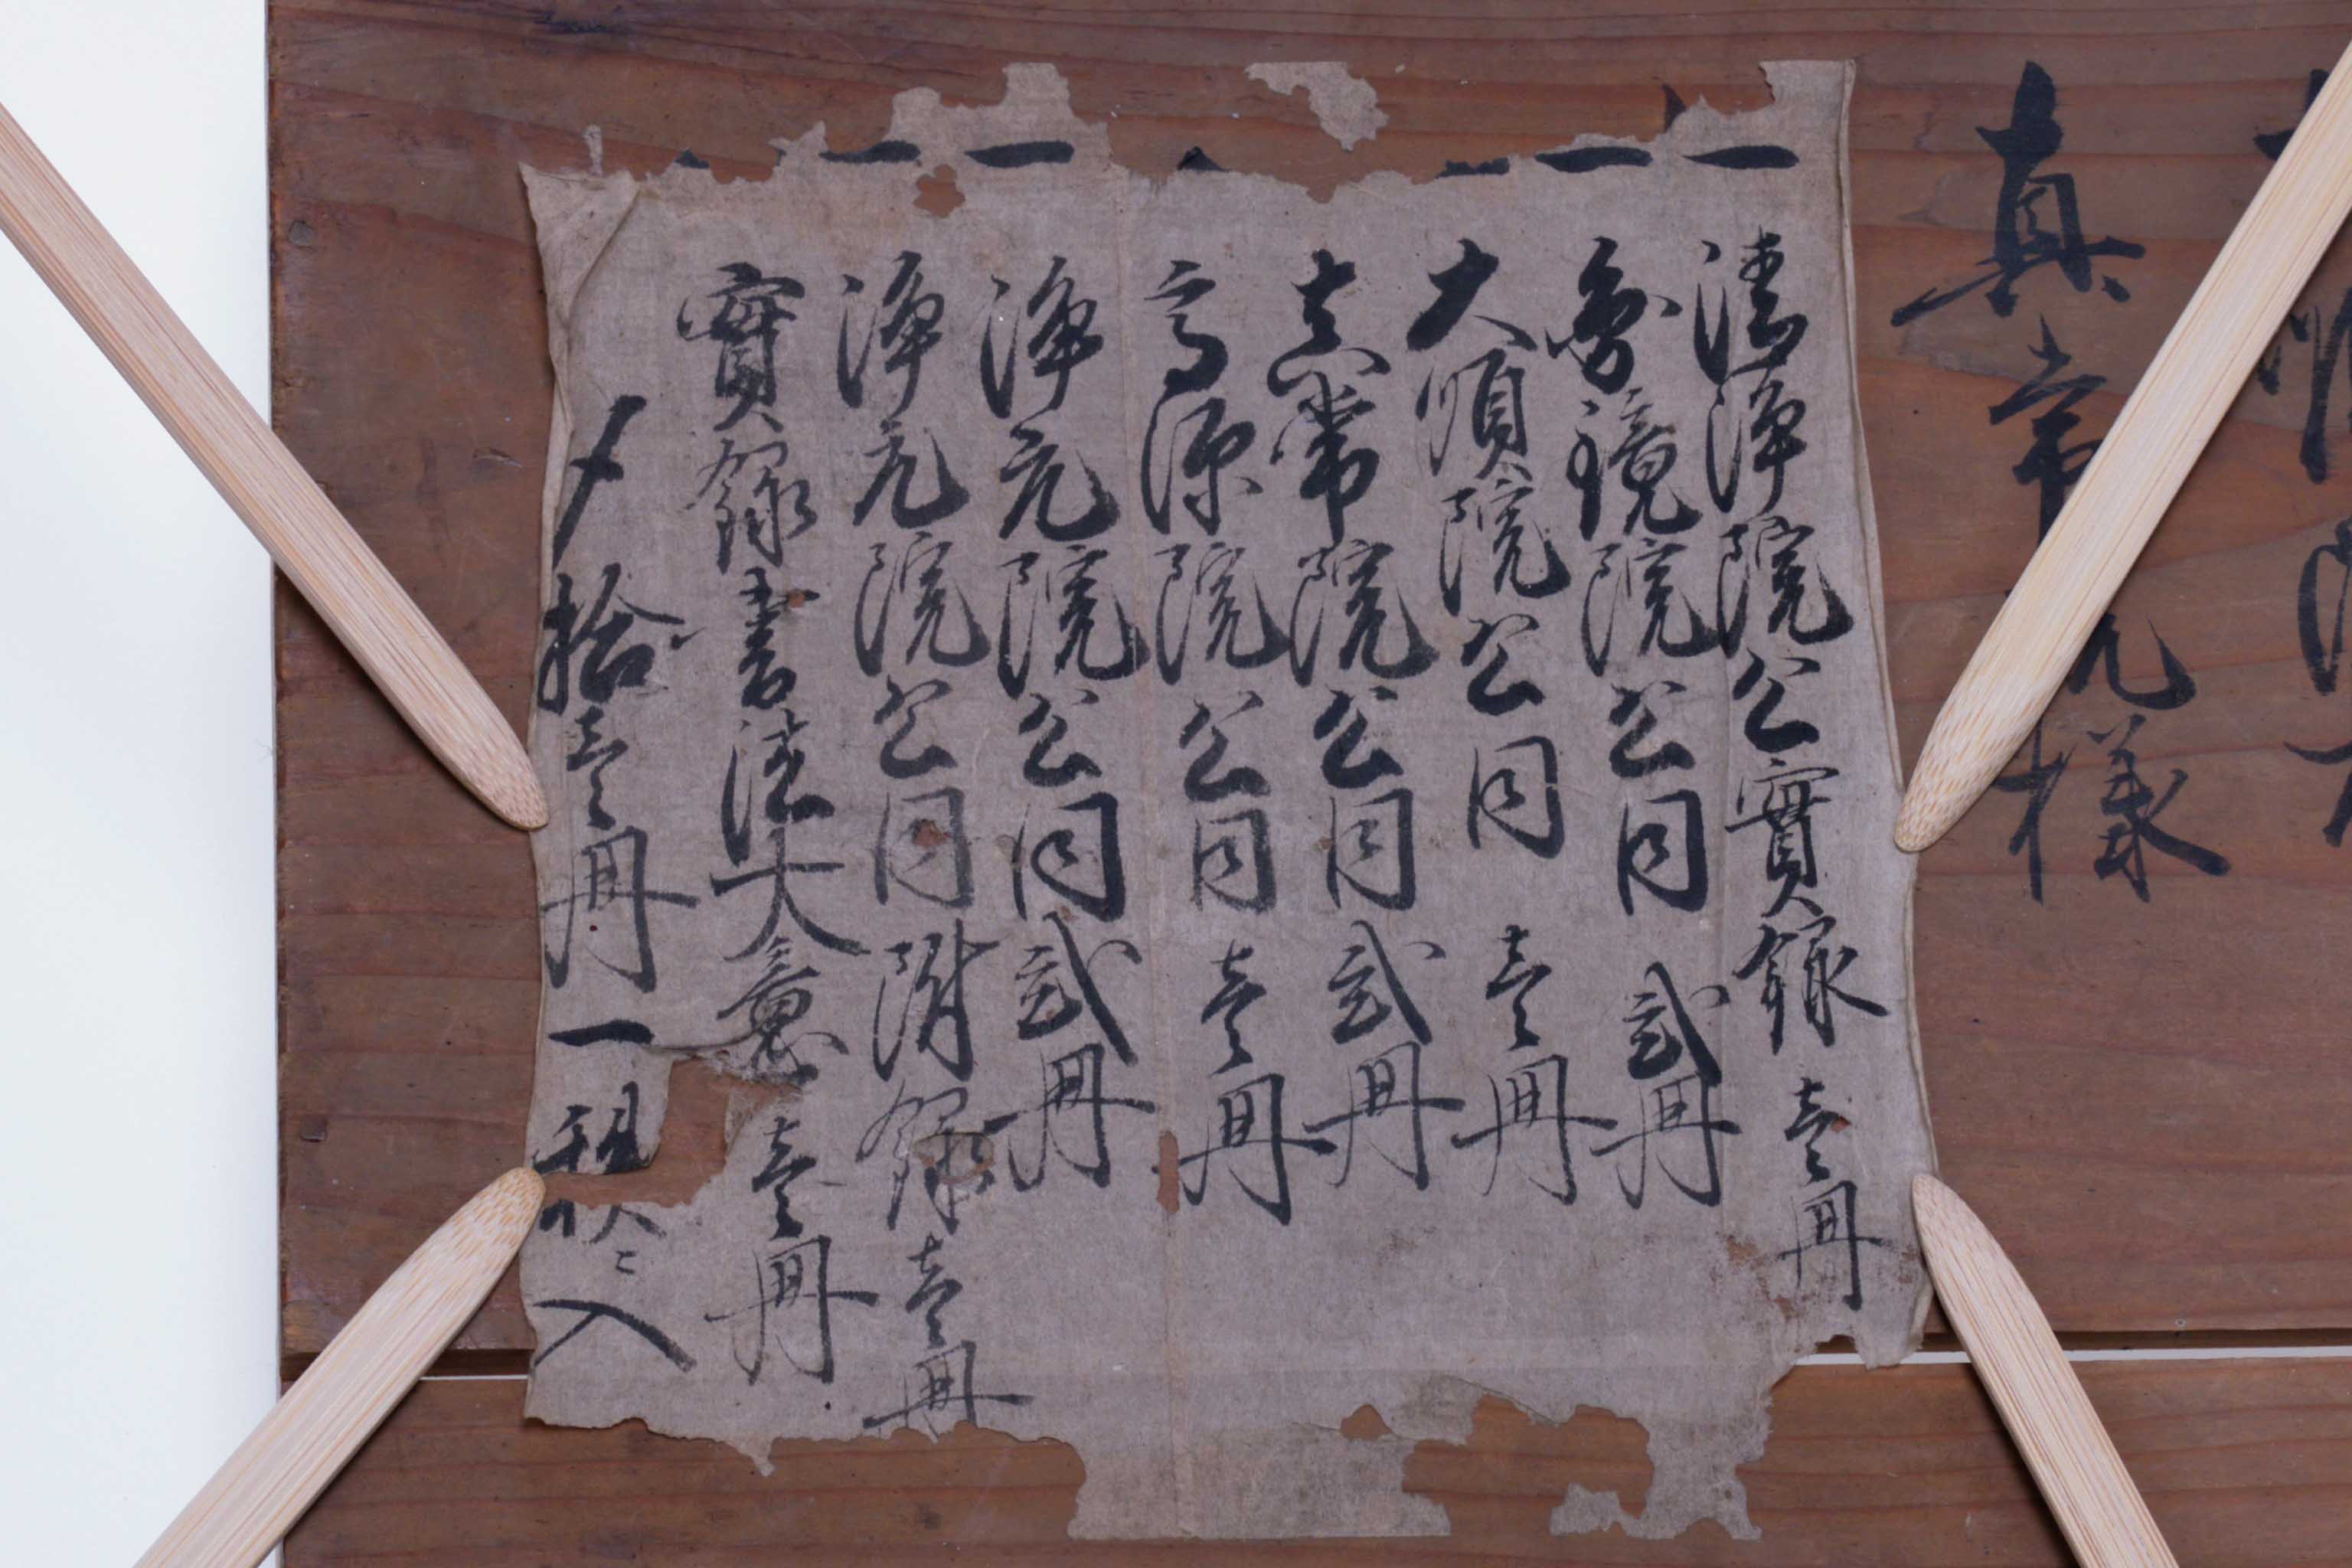 真常院様
一 清浄院公實録 壱冊
一 鏡院公同 弐冊
一 大順院公同 壱冊
真常院公同 弐冊
一 高源院公同 壱冊
一 浄元院公同 弐冊
一 浄元院公同附録 壱冊
一 實録書法大意 壱冊
〆拾壱冊 一 ニ入